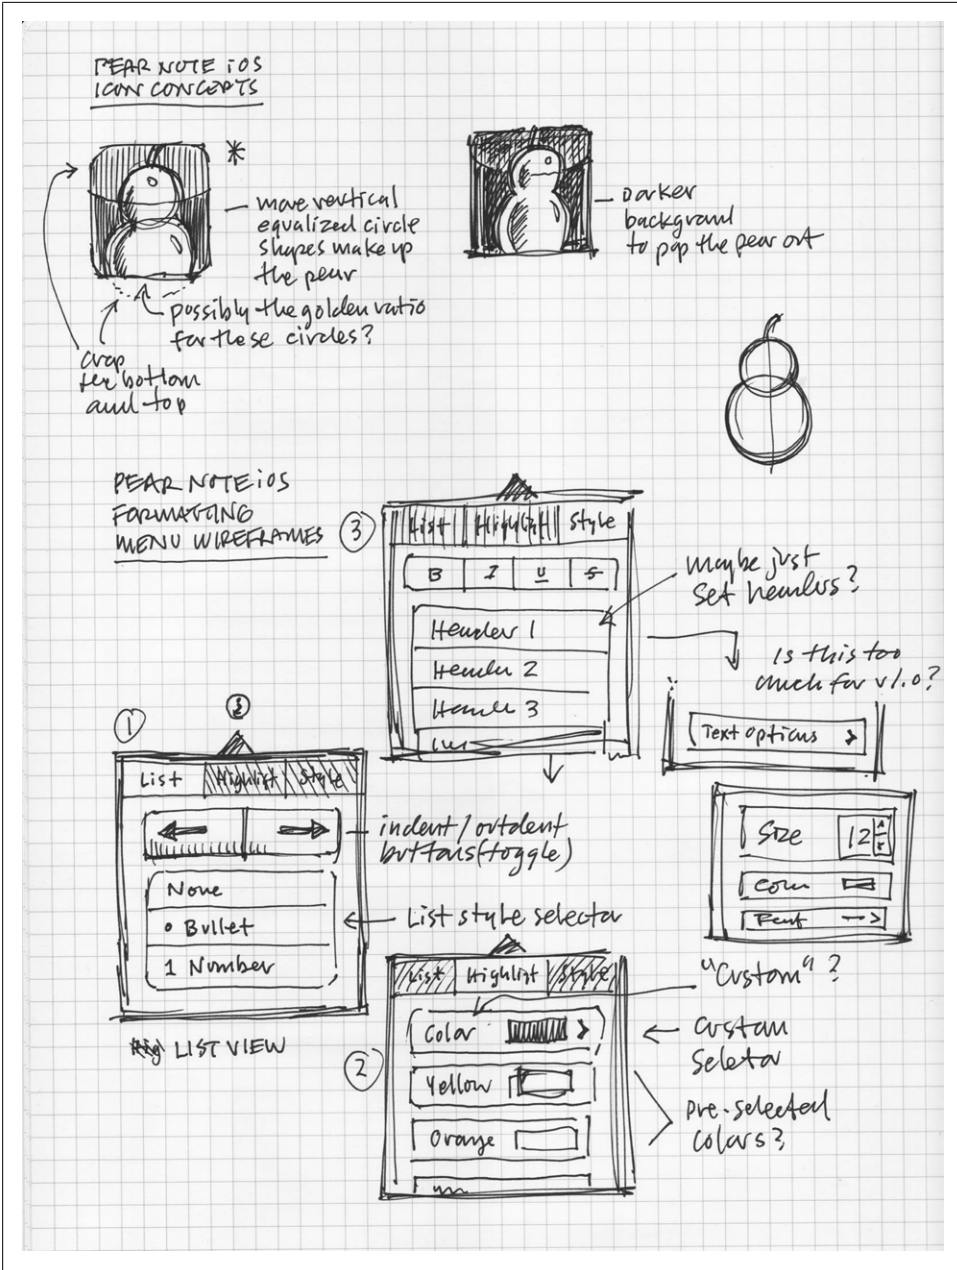 PEAR NOTE iOS
ICON CONCEPTS
*
more vertical
equalized circle
shapes make up
the pear
possibly the golden ratio
for these circles?
crop
the bottom
and top
Darker
background
to pop the pear out
PEAR NOTE iOS
FORMATTING
MENU WIREFRAMES
3
List Highlight Style
B I U S
Header 1
Header 2
Header 3
maybe just
set headers?
Is this too
much for v1.0?
Text options >
Size 12
Color
Font >
1
List Highlight Style
None
• Bullet
1 Number
indent/outdent
buttons (toggle)
List style selector
LIST VIEW
2
List Highlight Style
Color >
Yellow
Orange
"Custom" ?
Custom
Selector
pre-selected
colors?